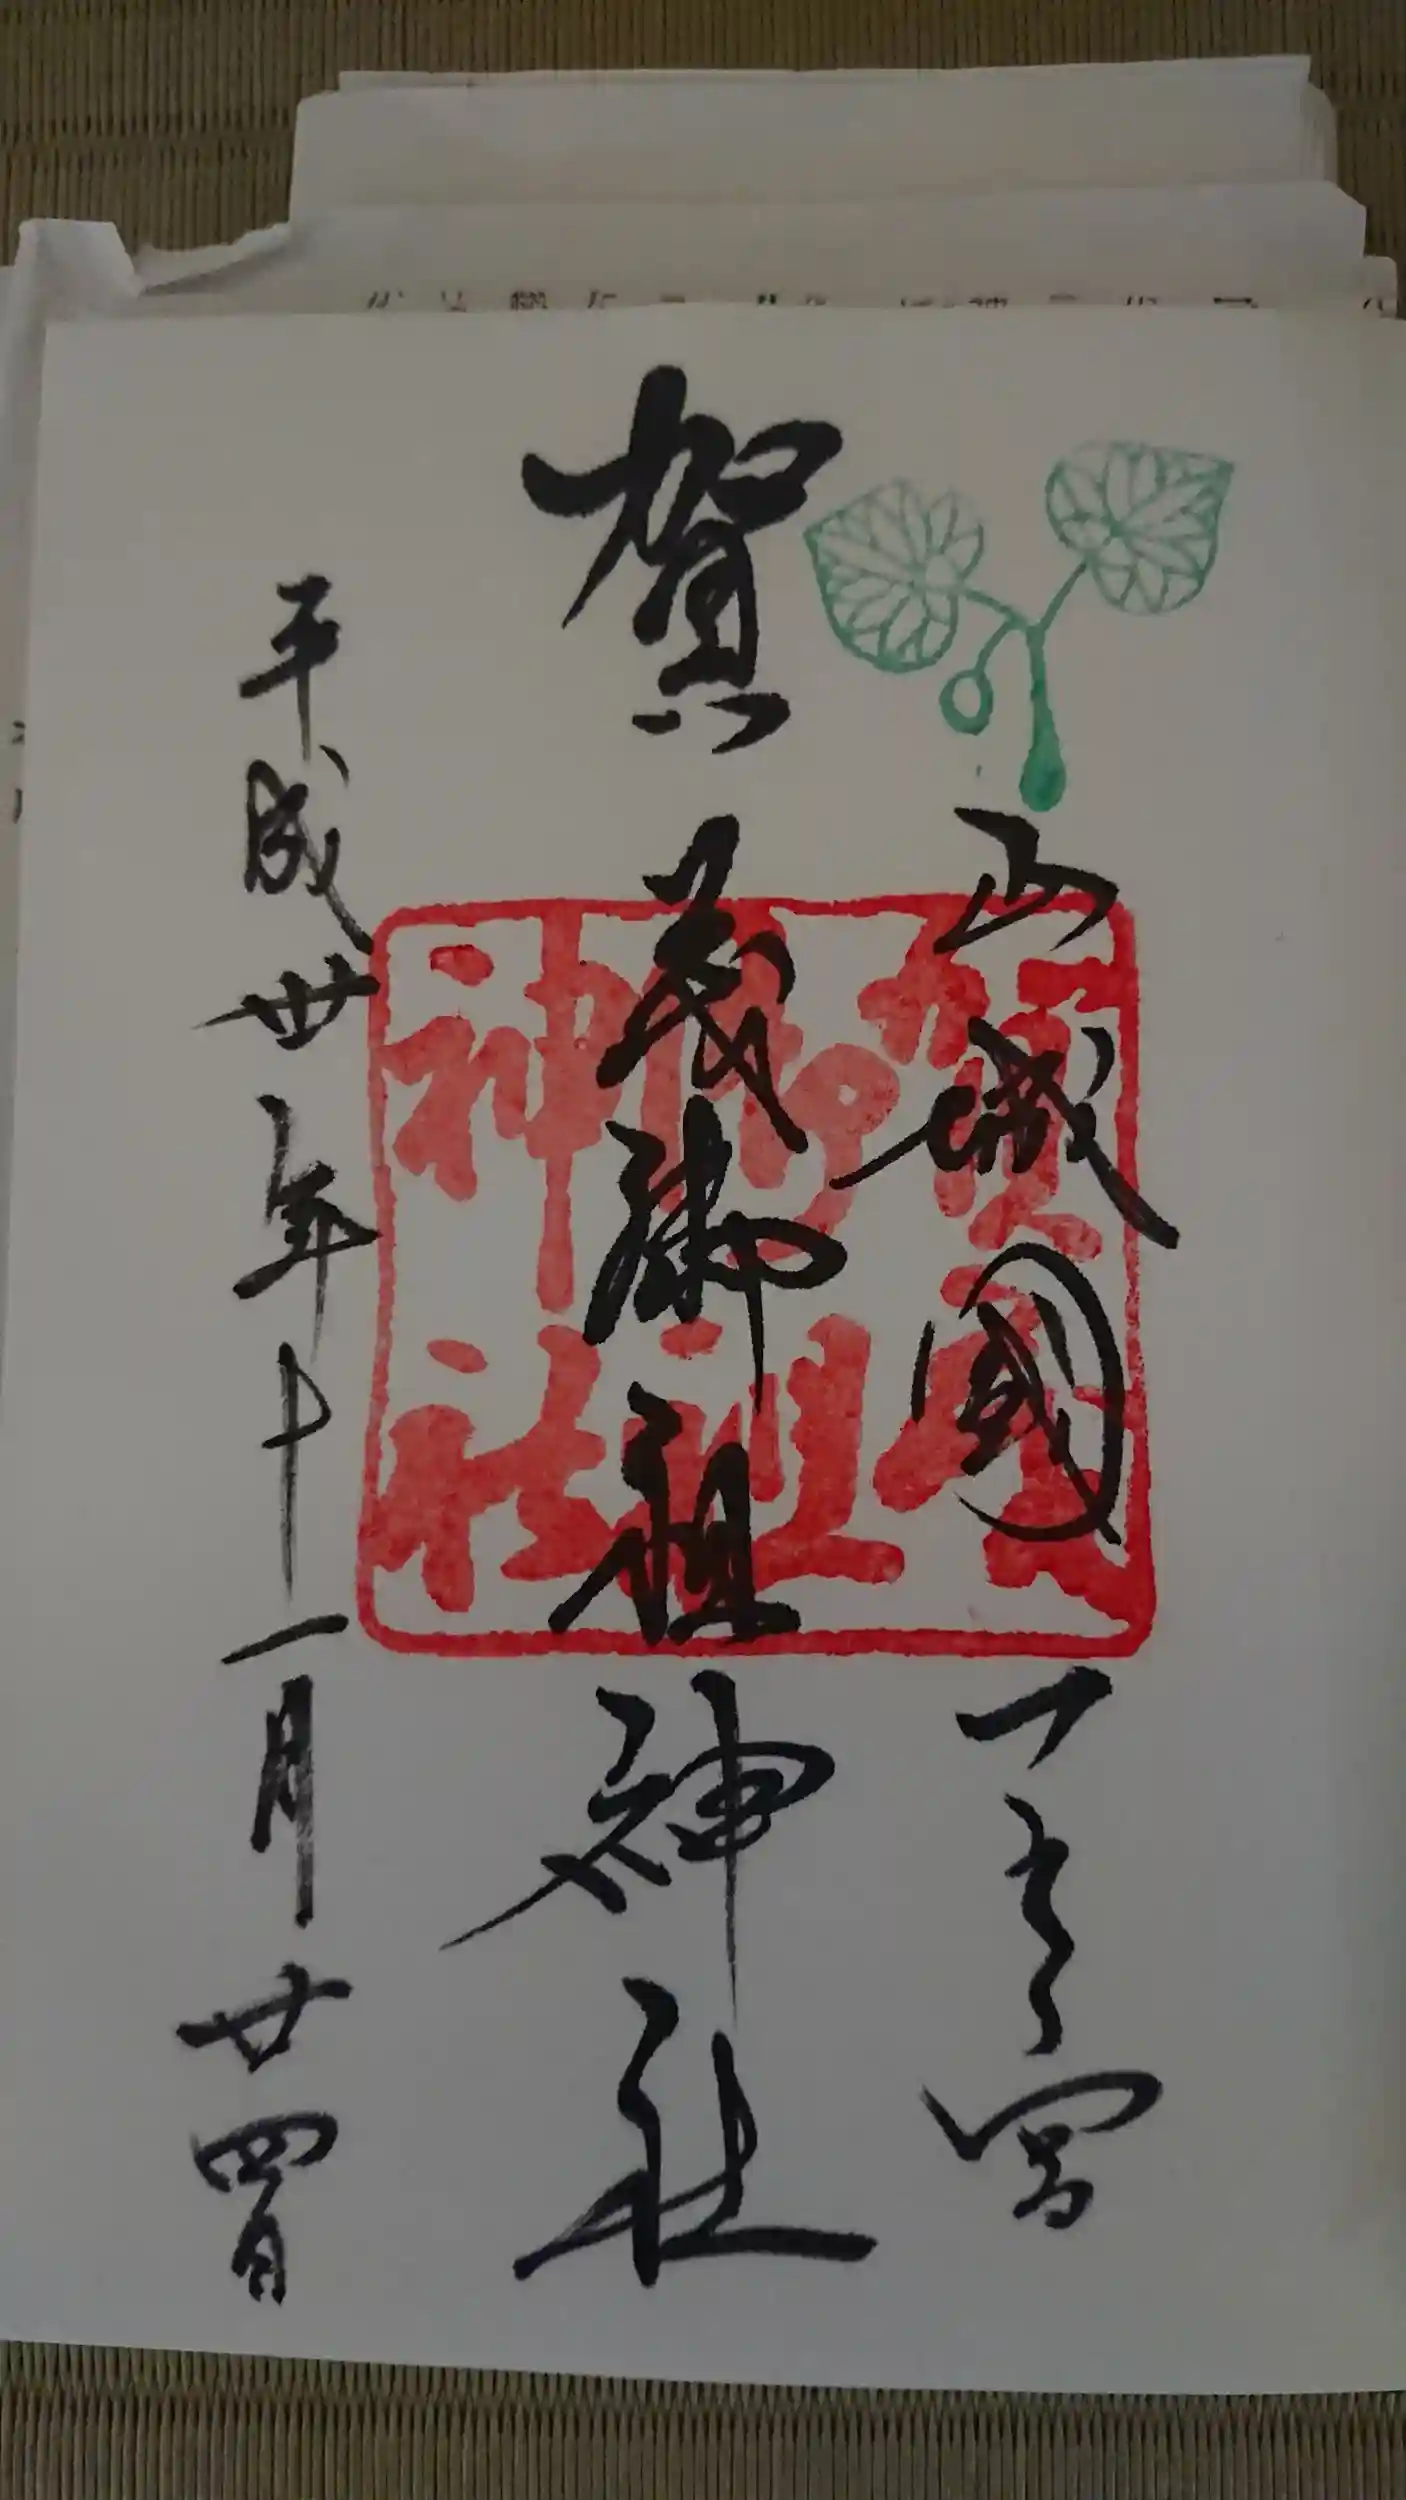 山城國一之宮
賀茂御祖神社
平成卅年十一月廿四日
賀茂
御祖
神社